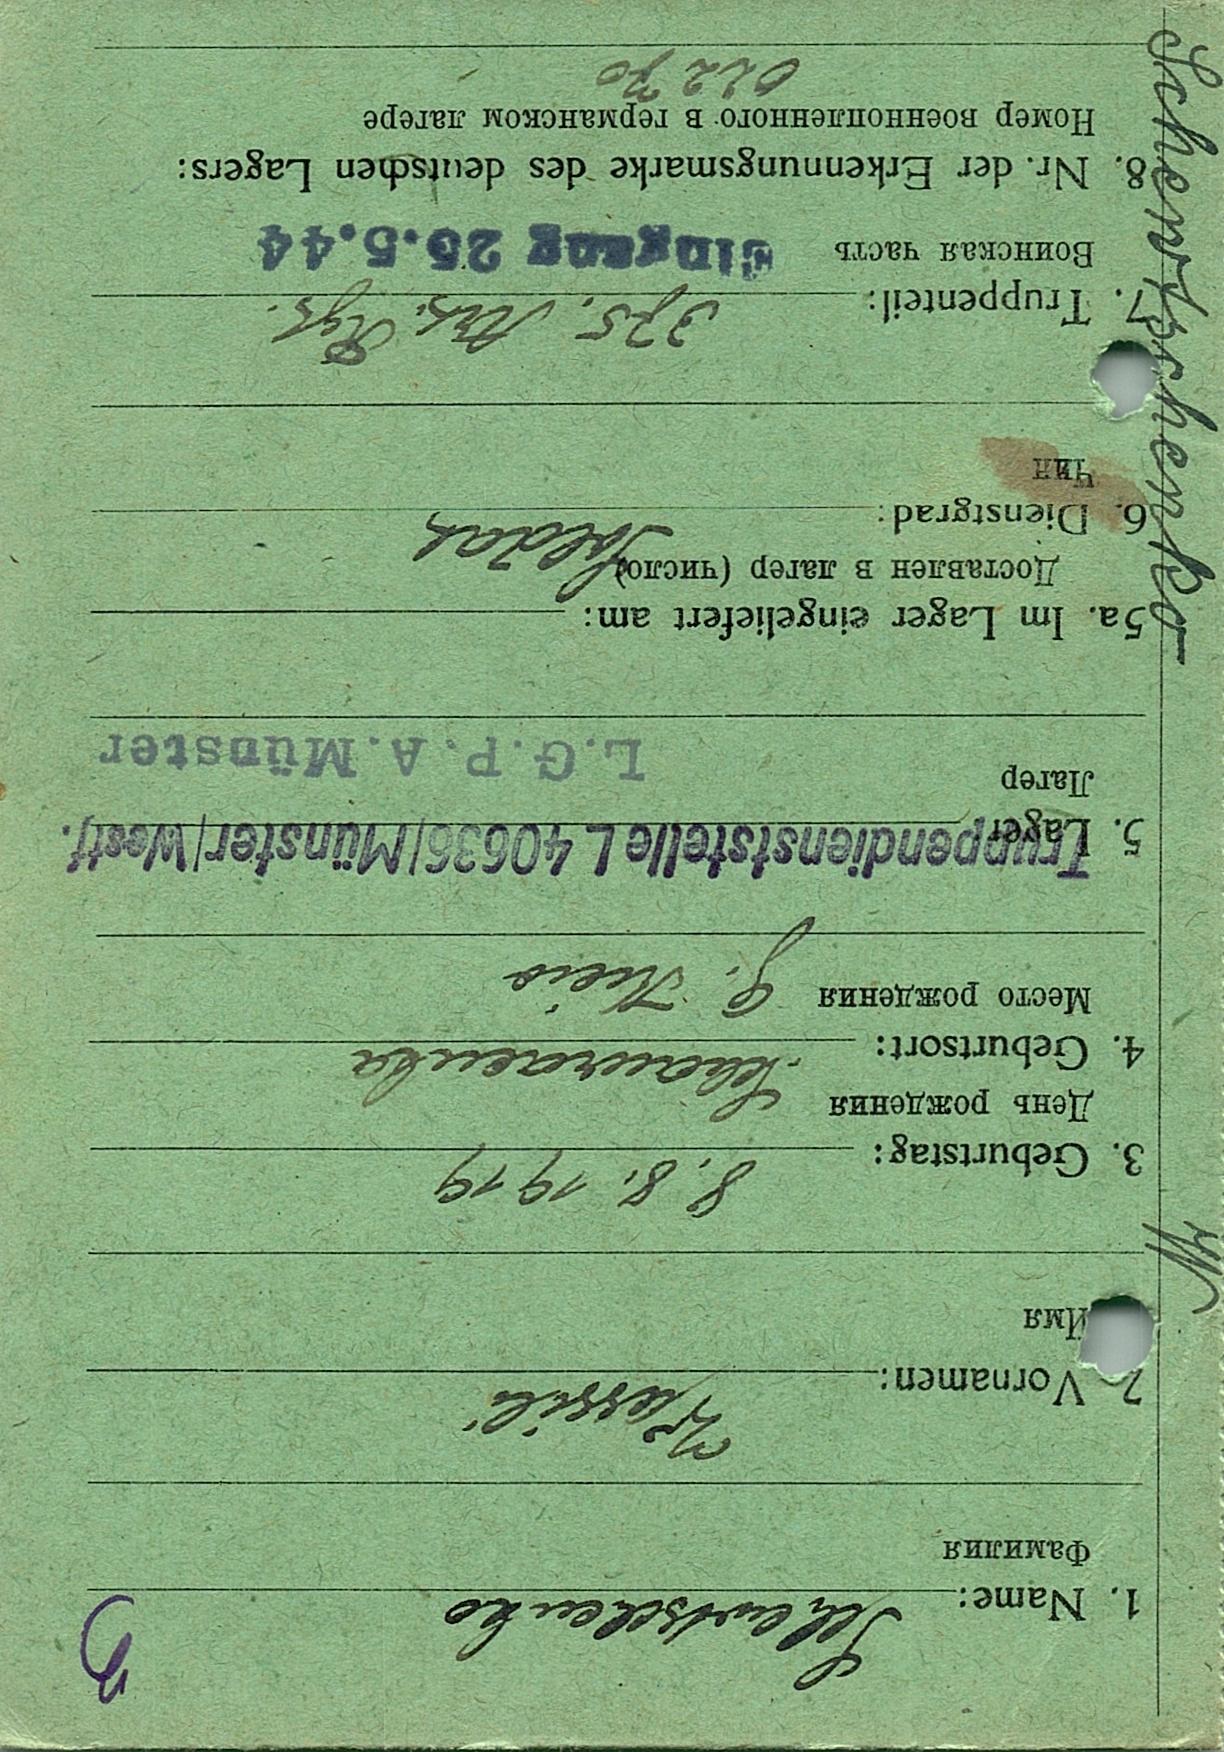 1. Name: Schewtschenko
Фамилия
2. Vornamen: Wassili
Имя
3. Geburtstag: 8.8.1919
День рождения
4. Geburtsort:
Место рождения G. Kiew
Truppendienststelle L 40636/Münster/Westf.
5. Lager
Лагер
L.G.P.A. Münster
5a. Im Lager eingeliefert am:
Доставлен в лагер (число)
6. Dienstgrad: Soldat
Чин
7. Truppenteil: 375. Art. Rgt.
Воинская часть Eingang 25.5.44
8. Nr. der Erkennungsmarke des deutschen Lagers:
Номер военнопленного в германском лагере
01270
W
Schewtschenko